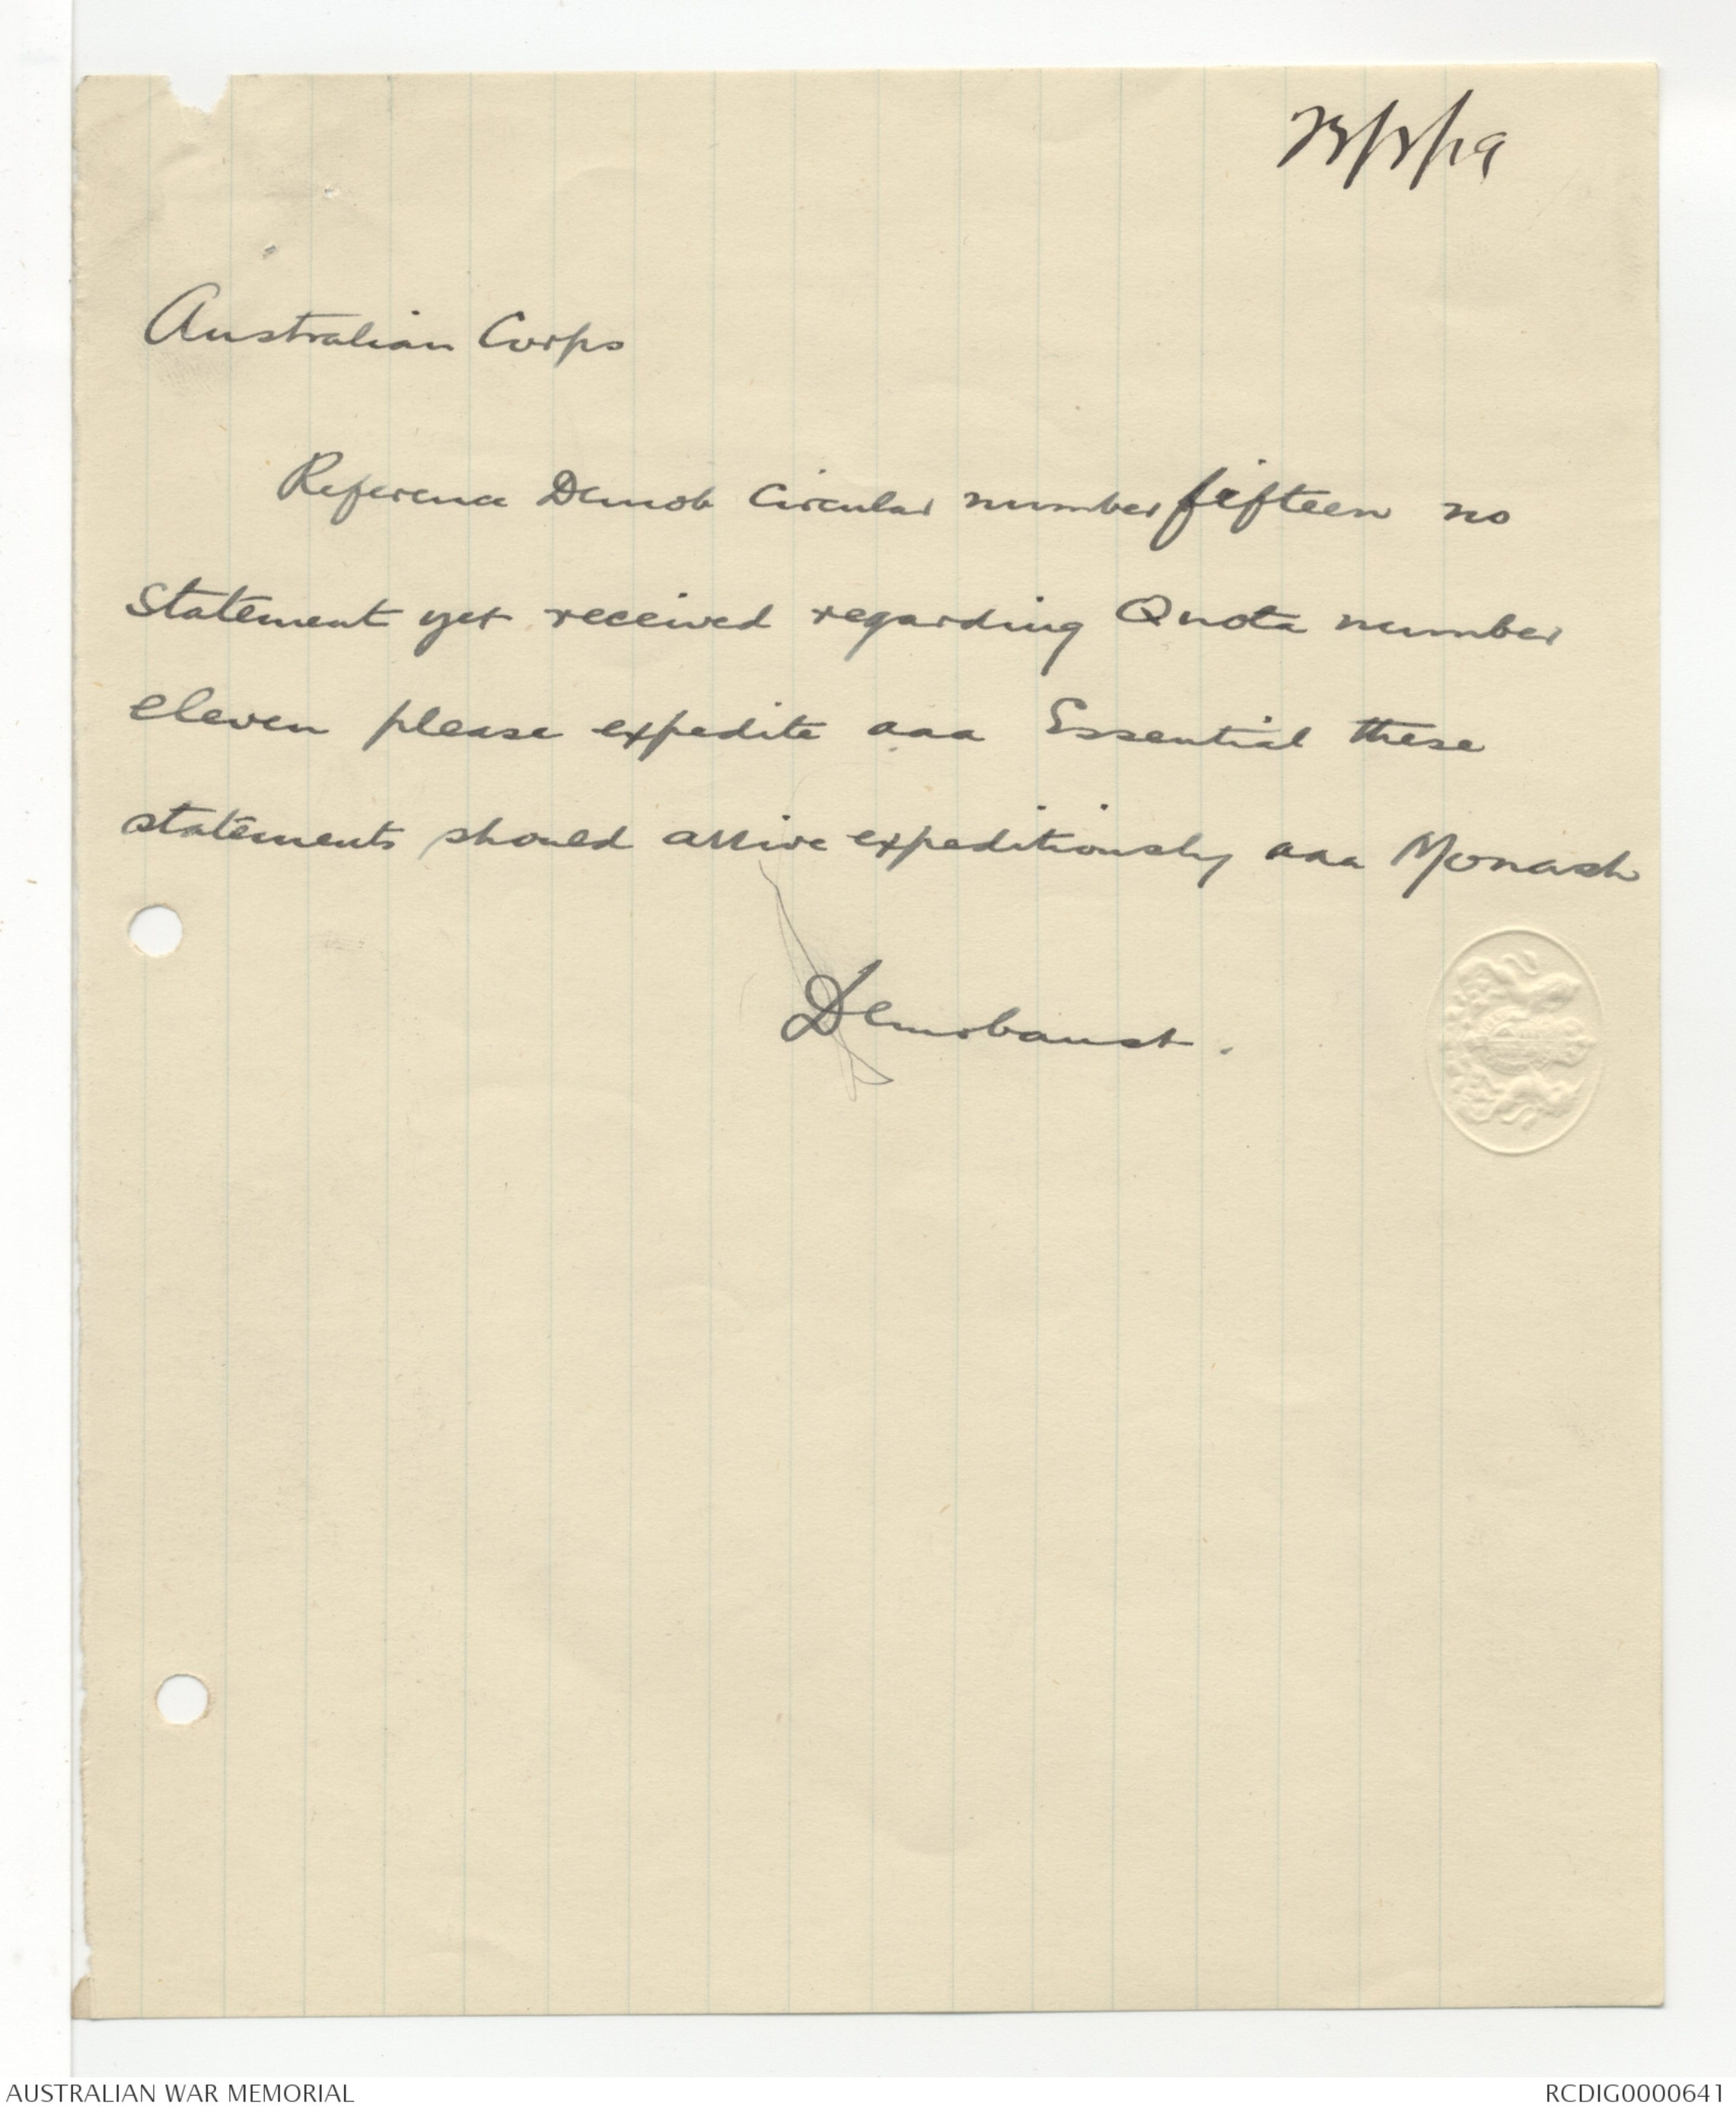 23/3/19
Australian Corps
Reference Demob Circular number fifteen no
statement yet received regarding Quota number
eleven please expedite aaa Essential these
statements should arrive expeditiously aaa Monash
Demobaust.
AUSTRALIAN WAR MEMORIAL
RCDIG0000641